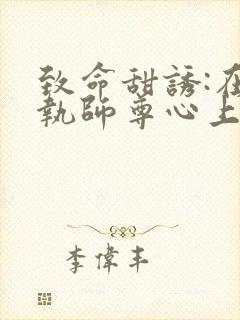 致命甜誘:在
執師尊心上
李偉丰